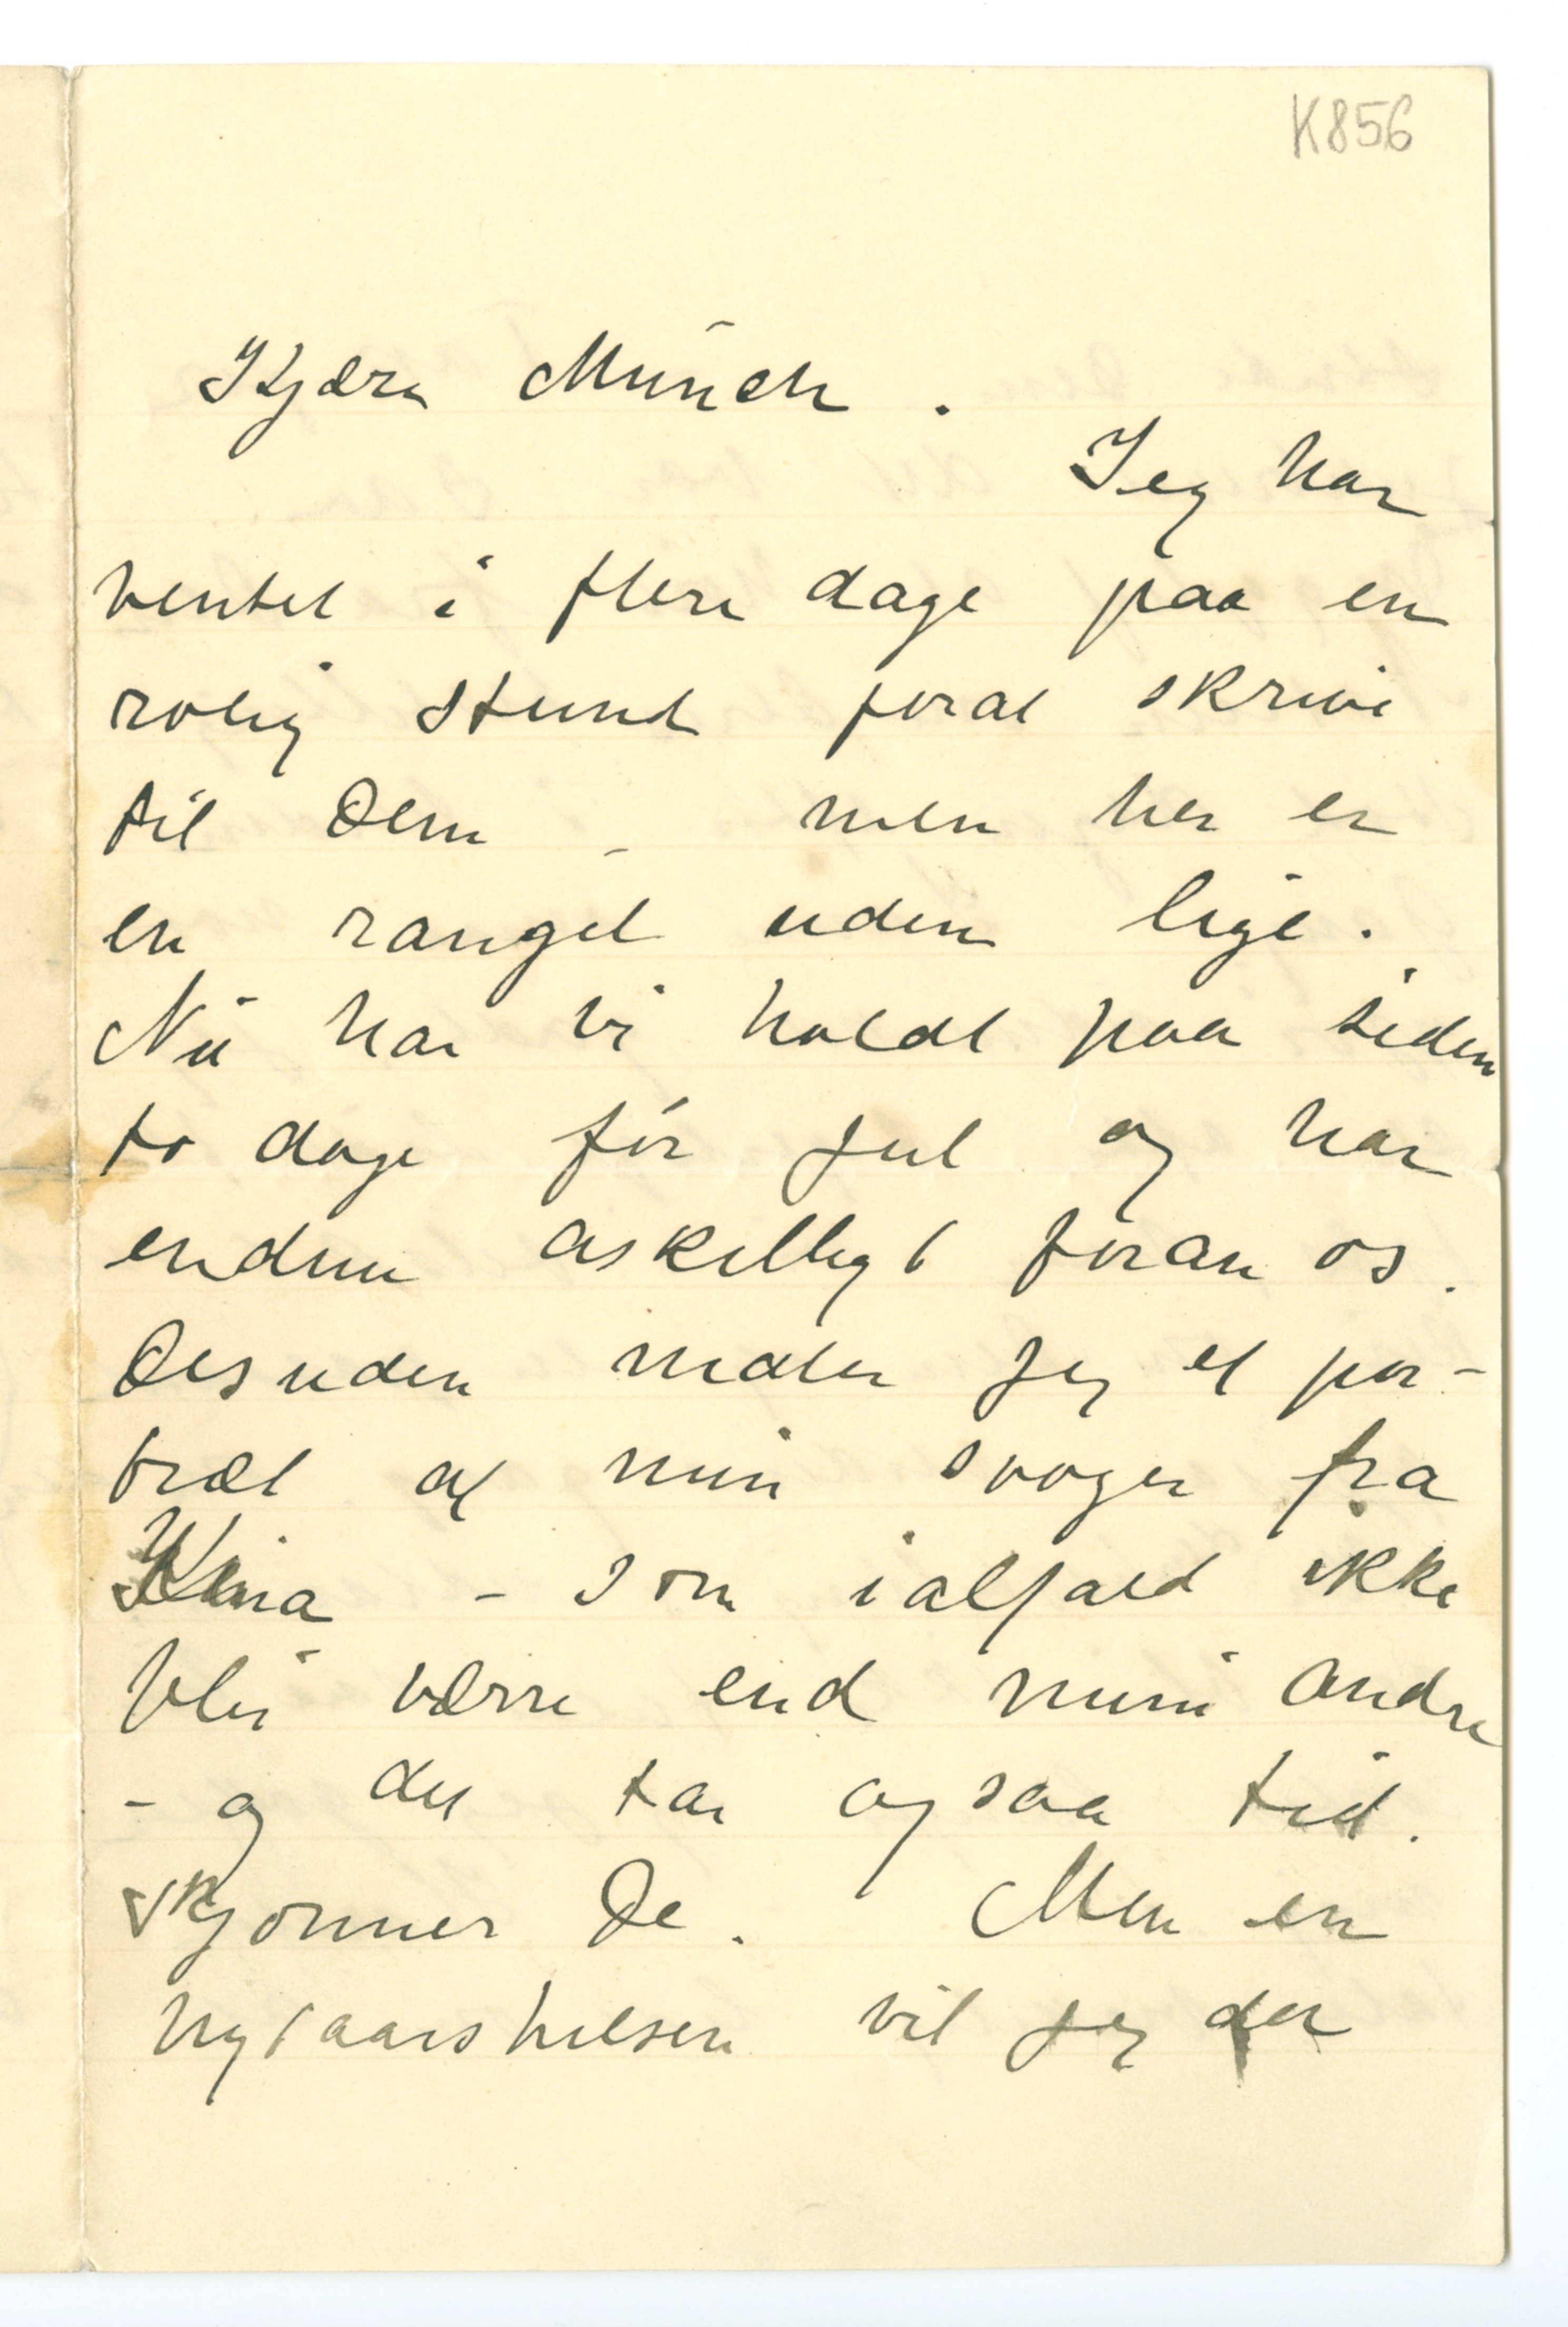 K856
Kjære Munch.
Jeg har
ventet i flere dage paa en
rolig stund forat skrive
til Dem – men her er
en rangel uden lige.
Nu har vi holdt paa siden
to dage før jul og har
endnu askilligt foran os.
Desuden maler jeg et por-
træt af min svoger fra
Kina – som ialfald ikke
blir værre end mine andre
– og det tar ogsaa tid.
skjønner De. Men en
nytaarshilsen vil jeg der